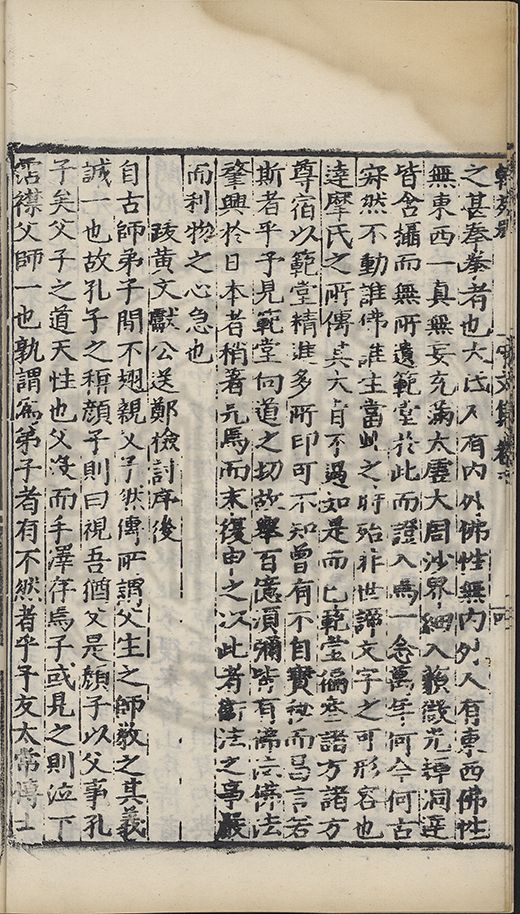 之甚拳拳者也大氐人有内外佛性無内外人有東西佛性
無東西一真無妄充滿太虛大周沙界細入蘋微光輝洞達
皆含攝而無所遺範堂於此而證入焉一念萬年何今何古
寂然不動誰佛誰生當此之時殆非世諦文字之可形容也
達摩氏之所傳其大旨不過如是而已範堂徧參諸方諸方
尊宿以範堂精進多所印可不知曾有不自寶祕而昌言若
斯者乎予見範堂向道之切故舉百億須彌皆有佛法佛法
肇興於日本者稍著見焉而末復申之以此者蓋法之事嚴
而利物之心急也
跋黃文獻公送鄭檢討序後
自古師弟子間不翅親父子然傳所謂父生之師教之其義
誠一也故孔子之稱顏子則曰視吾猶父是顏子以父事孔
子矣父子之道天性也父沒而手澤存焉子或見之則泣下
霑襟父師一也孰謂爲弟子者有不然者乎予友太常博士